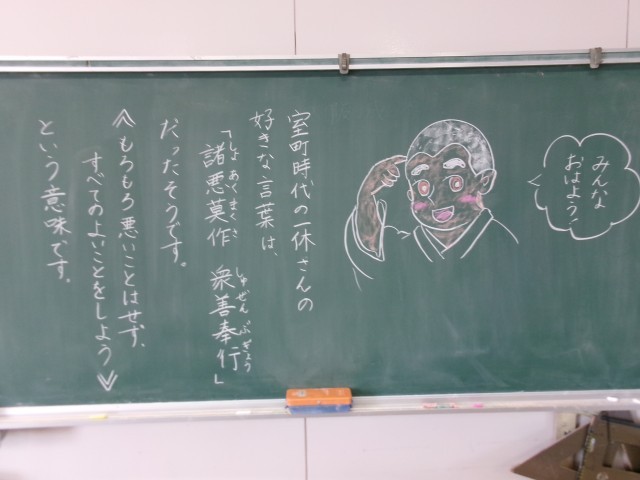 みんな
おはよう！
室町時代の一休さんの
好きな言葉は、
「諸悪莫作 衆善奉行」
しょあくまくさ しゅぜんぶぎょう
だったそうです。
≪もろもろ悪いことはせず、
すべてのよいことをしよう≫
という意味です。